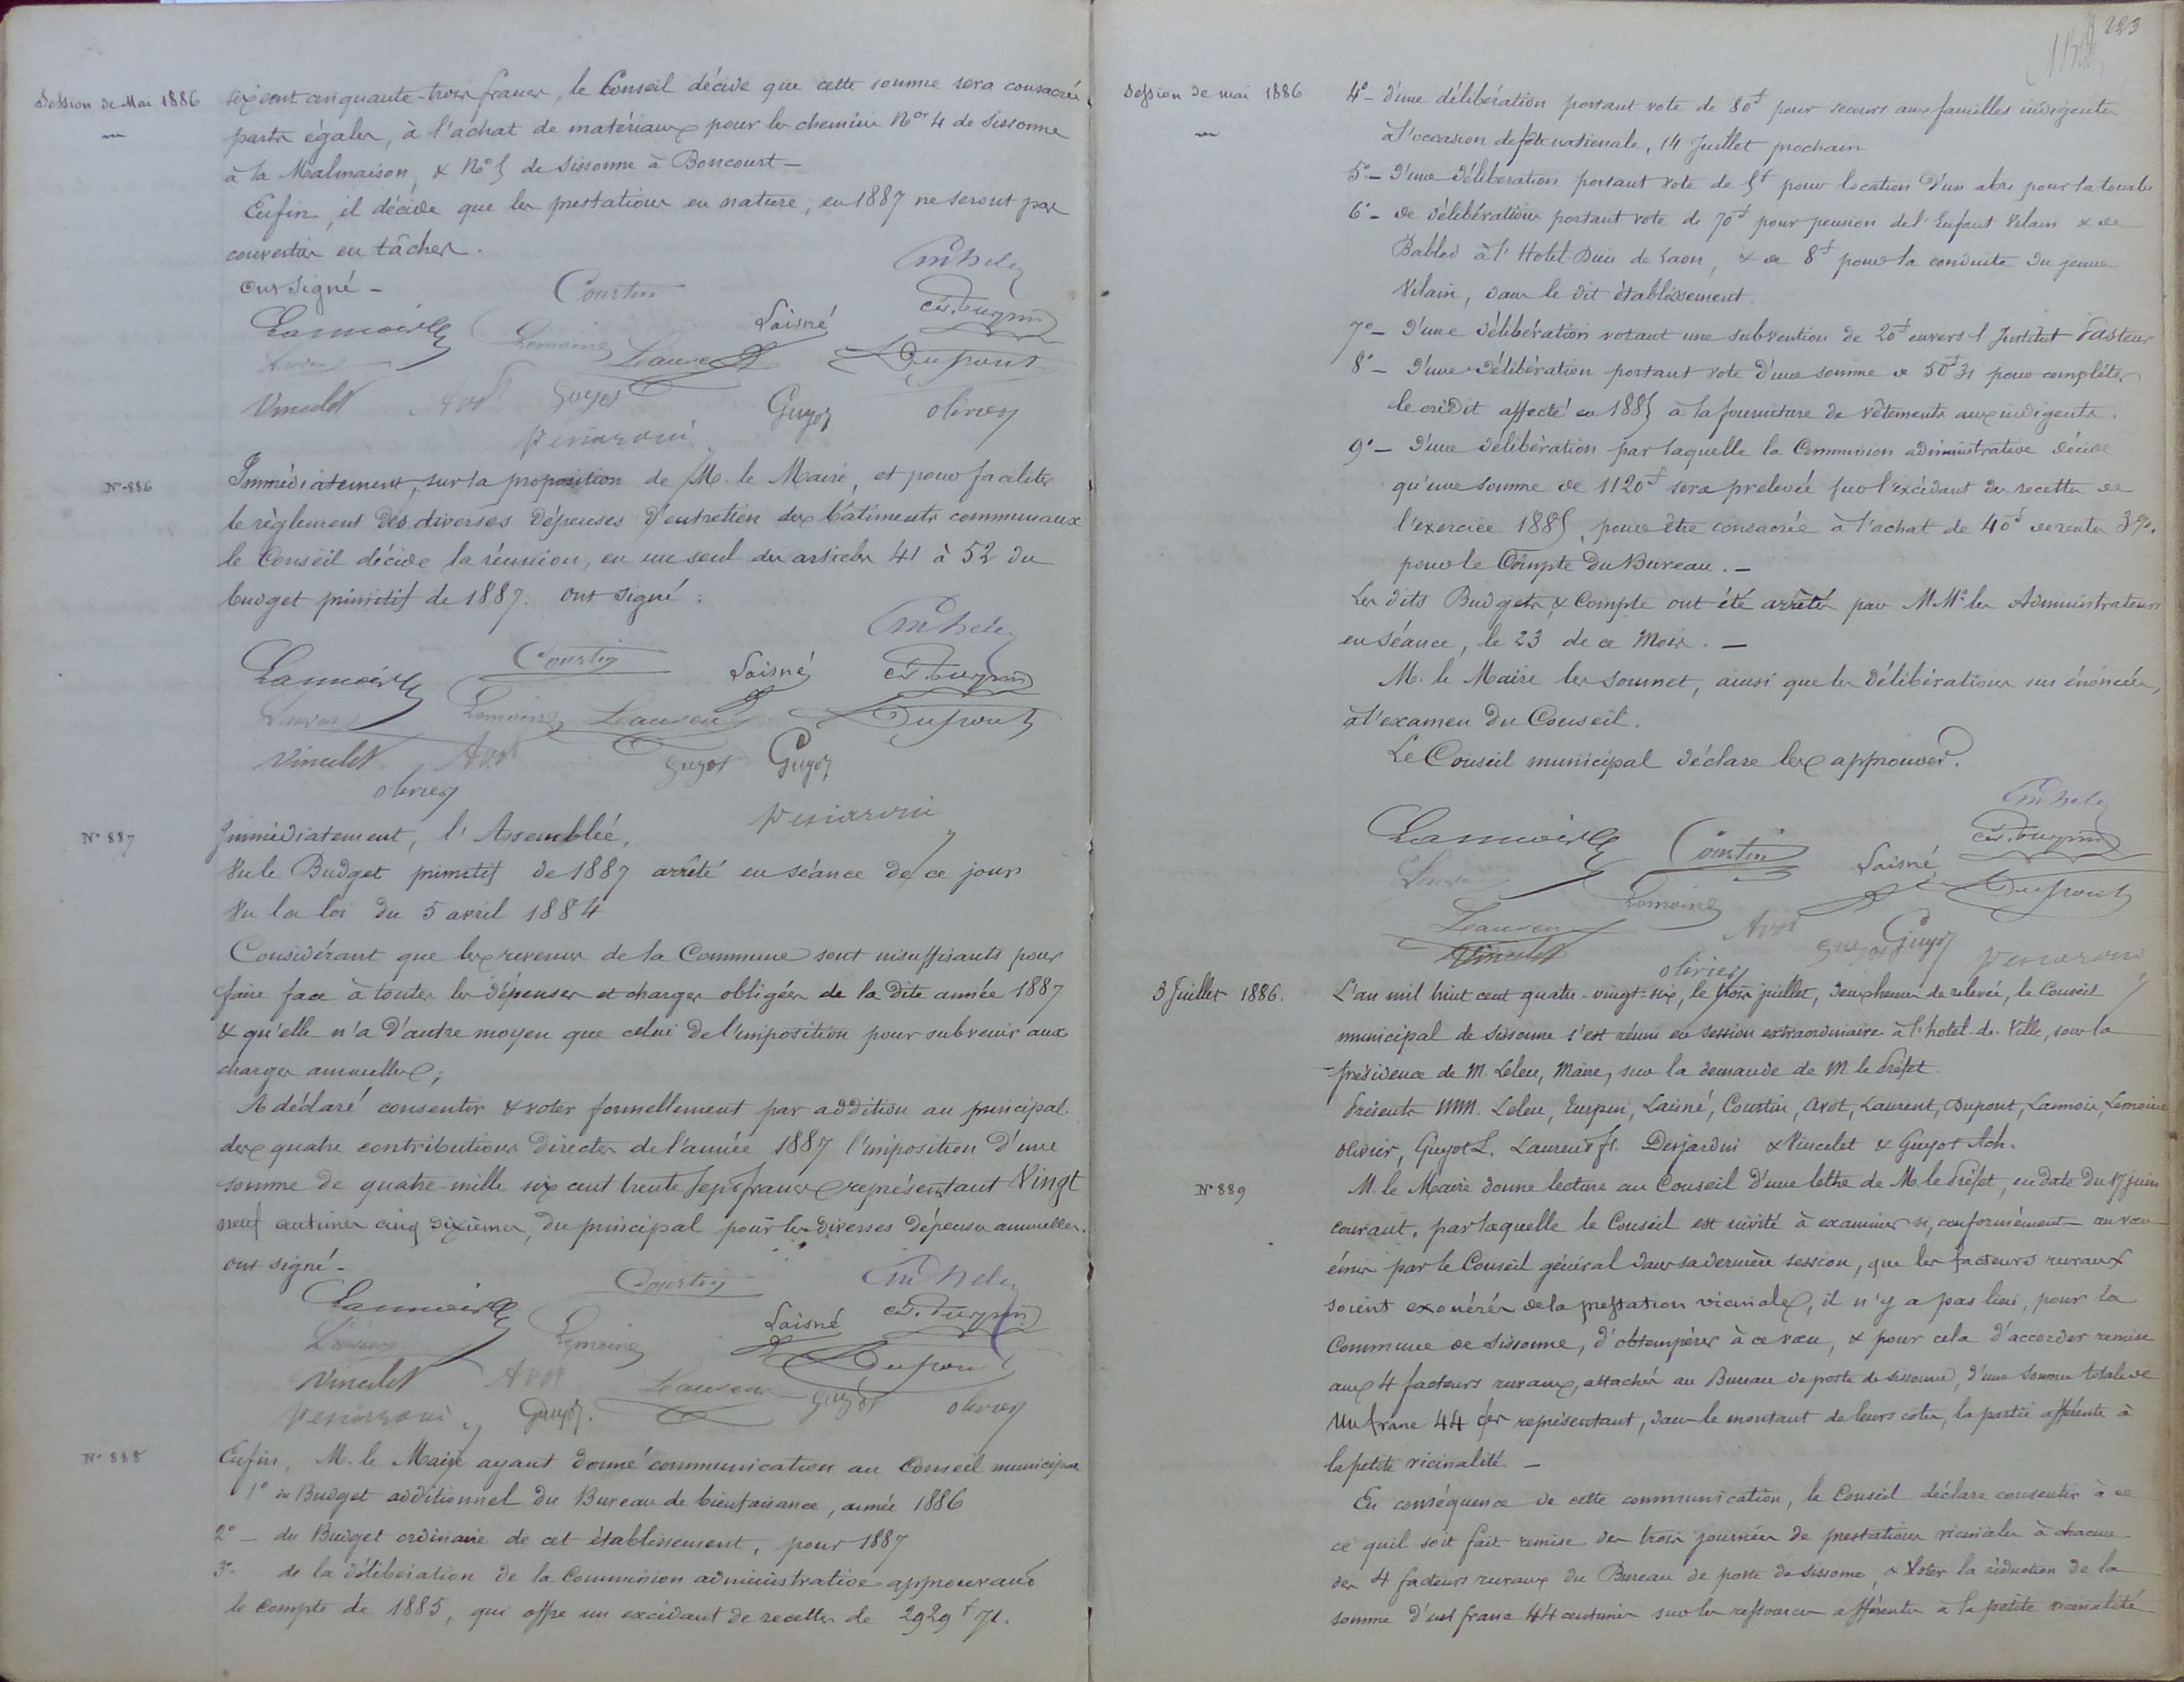 Session de Mai 1886
six cent cinquante-trois francs, le Conseil décide que cette somme sera consacrée
parts égales, à l'achat de matériaux pour les chemins Nos 4 de Sissonne
à la Malmaison, & No 5 de Sissonne à Boncourt —
Enfin, il décide que les prestations en nature, en 1887 ne seront pas
converties en tâches.
Ont signé —
Courtin
Lannois
Lemoine
Laisné
Dupont
Laurent
Vincelet Avot Guyot Guyot olivier
N° 886
Immédiatement, sur la proposition de M. le Maire, et pour faciliter
le règlement des diverses dépenses d'entretien des bâtiments communaux
le Conseil décide la réunion, en un seul des articles 41 à 52 du
budget primitif de 1887. ont signé :
Lannois Courtin Laisné
Lemoine Laurent Dupont
Vincelet Avot Guyot Guyot
olivier
N° 887
Immédiatement, l'Assemblée,
Vu le Budget primitif de 1887 arrêté en séance de ce jour
Vu la loi du 5 avril 1884
Considérant que les revenus de la Commune sont insuffisants pour
faire face à toutes les dépenses et charges obligées de la dite année 1887
& qu'elle n'a d'autre moyen que celui de l'imposition pour subvenir aux
charges annuelles;
A déclaré consentir & voter formellement par addition au principal
des quatre contributions directes de l'année 1887 l'imposition d'une
somme de quatre mille six cent trente sept francs représentant Vingt
neuf centimes cinq dixièmes, du principal pour les diverses dépenses annuelles.
ont signé —
Lannois Courtin
Lemoine Laisné
Dupont
Vincelet Avot Laurent Guyot olivier
Guyot.
N° 888
Enfin, M. le Maire ayant donné communication au Conseil municipal
1° du Budget additionnel du Bureau de bienfaisance, année 1886
2° — du Budget ordinaire de cet établissement, pour 1887
3° de la délibération de la Commission administrative approuvant
le compte de 1885, qui offre un excédant de recettes de 2929 f 71.
223
Session de mai 1886
4° — d'une délibération portant vote de 80f pour secours aux familles indigentes
à l'occasion de fête nationale, 14 Juillet prochain
5° — D'une délibération portant vote de 5f pour location d'un abri pour la tourbe
6° — de délibération portant vote de 70f pour pension de l'Enfant Vilain & de
Babled à l'Hotel-Dieu de Laon, & de 8f pour la conduite du jeune
Vilain, dans le dit établissement.
7° — D'une délibération votant une subvention de 20f envers l'Institut Pasteur
8° — D'une délibération portant vote d'une somme de 50f 31 pour compléter
le crédit affecté en 1885 à la fourniture de vêtements aux indigents.
9° — D'une délibération par laquelle la Commission administrative décide
qu'une somme de 1120f sera prelevée sur l'excédant des recettes de
l'exercice 1885, pour être consacrée à l'achat de 40f de rentes 3%.
pour le Compte du Bureau. —
Les dits Budgets & Compte ont été arrêtés par MMrs les Administrateurs
en séance, le 23 de ce Mois. —
M. le Maire les soumet, ainsi que les délibérations sus énoncées,
à l'examen du Conseil.
Le Conseil municipal déclare les approuver.
Lannois Courtin Laisné
Lemoine Dupont
Laurent Avot Guyot Guyot
Vincelet
olivier
3 Juillet 1886.
L'an mil huit cent quatre-vingt-six, le trois juillet, deux heures de relevée, le Conseil
municipal de Sissonne s'est réuni en session extraordinaire à l'hotel-de-Ville, sous la
présidence de M. Leleu, Maire, sur la demande de M le Préfet.
Présents MM. Leleu, Turpin, Laisné, Courtin, Avot, Laurent, Dupont, Lannois, Lemoine
olivier, Guyot L. Laurent ft. Desjardins & Vincelet & Guyot Ach.
N° 889
M. le Maire donne lecture au Conseil d'une lettre de M. le Préfet, en date du 17 juin
courant, par laquelle le Conseil est invité à examiner si, conformément au vœu
émis par le Conseil général dans sa dernière session, que les facteurs ruraux
soient exonérés de la prestation vicinale, il n'y a pas lieu, pour la
Commune de Sissonne, d'obtempérer à ce vœu, & pour cela d'accorder remise
aux 4 facteurs ruraux, attachés au Bureau de poste de Sissonne, d'une somme totale de
Un franc 44 ces représentant, dans le montant de leurs cotes, la partie afférente à
la petite vicinalité. —
En conséquence de cette communication, le Conseil déclare consentir à ce
ce qu'il soit fait remise des trois journées de prestations vicinales à chacun
des 4 facteurs ruraux du Bureau de poste de Sissonne, & voter la réduction de la
somme d'un franc 44 centimes sur les ressources afférentes à la petite vicinalité